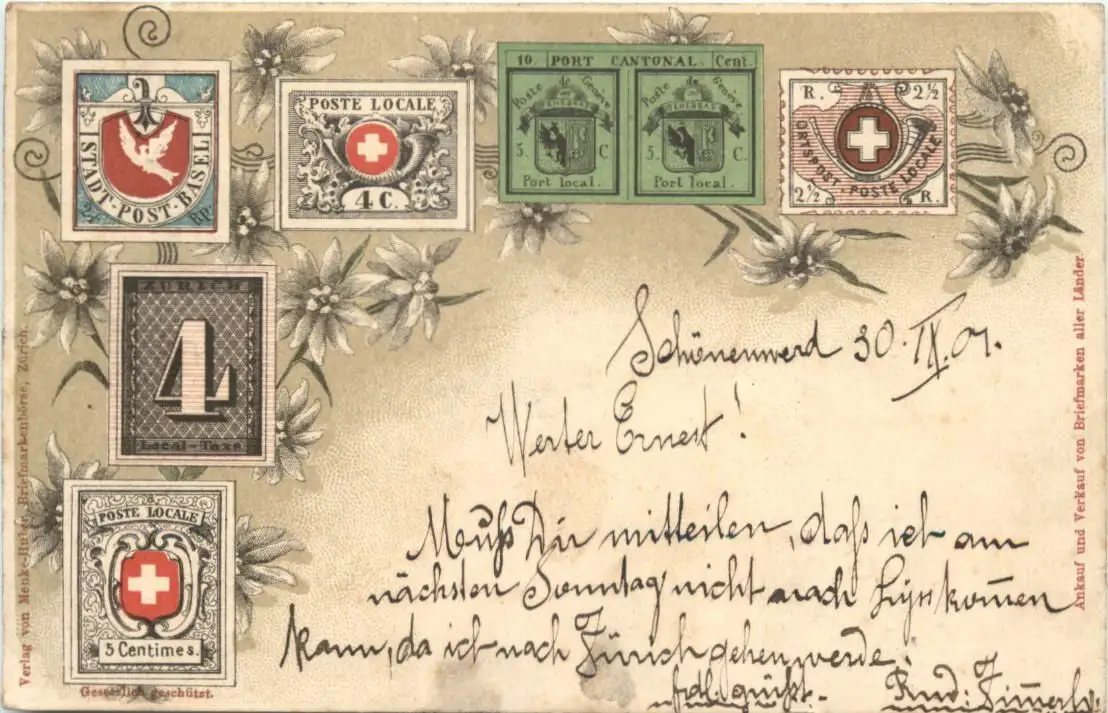 STADT-POST-BASEL
2½ RP.
POSTE LOCALE
4 C.
10. PORT CANTONAL. Cent.
Poste de Genève
POST TENEBRAS LUX
5. C.
Port local.
Poste de Genève
POST TENEBRAS LUX
5. C.
Port local.
R. 2½
ORTSPOST·POSTE LOCALE
2½ R.
ZÜRICH
4
Local-Taxe
POSTE LOCALE
5 Centimes.
Gesetzlich geschützt.
Verlag von Menke-Huber, Briefmarkenbörse, Zürich.
Ankauf und Verkauf von Briefmarken aller Länder.
Schönenwerd 30. IX. 01.
Werter Ernest!
Muß Dir mitteilen, daß ich am
nächsten Sonntag nicht nach kom̄en
kann, da ich nach Zürich gehen werde.
frdl. grüßt. Rud: